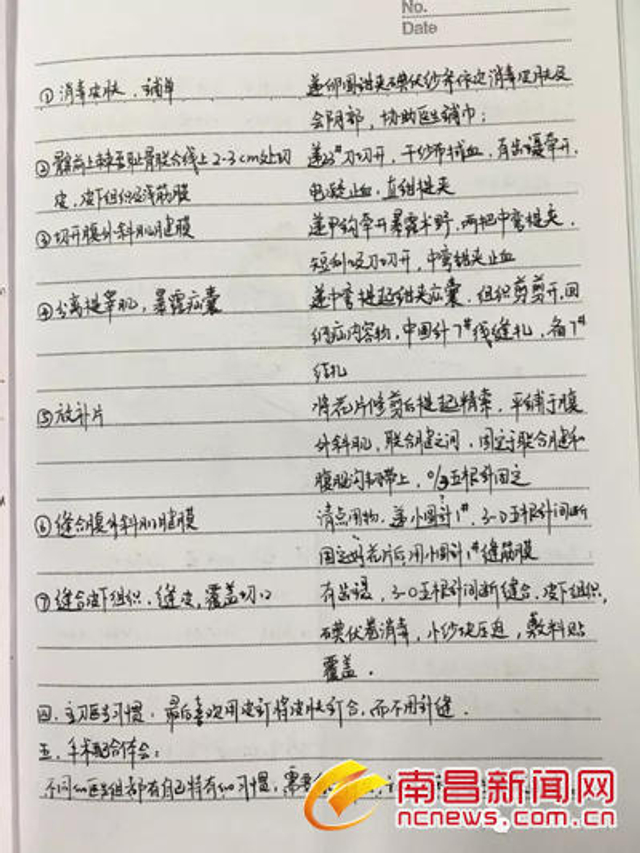 No.
Date
①消毒皮肤、铺单 递卵圆钳夹碘伏纱布依次消毒皮肤及
会阴部，协助医生铺巾；
②髂前上棘至耻骨联合线上2-3cm处切 递23#刀切开，干纱布拭血，有齿镊牵开，
皮、皮下组织及浅筋膜 电凝止血，直钳提夹
③切开腹外斜肌腱膜 递甲钩牵开暴露术野，两把中弯提夹，
切开，中弯钳夹止血
④分离提睾肌，暴露疝囊 递中弯提起钳夹疝囊，组织剪剪开，回
纳疝内容物，中圆针7#线缝扎，备7#
结扎
⑤放补片 将花片修剪后提起精索，平铺于腹
外斜肌，联合腱之间，固定于联合腱和
腹股沟韧带上，固定
⑥缝合腹外斜肌腱膜 清点用物，递小圆针1#，3-0 间断
固定好花片后用小圆针1#缝筋膜
⑦缝合皮下组织，缝皮，覆盖切口 有齿镊，3-0 间断缝合，皮下组织，
碘伏卷消毒，小纱块压迫，敷料贴
覆盖．
四．主刀医生习惯．最后喜欢用皮钉将皮肤钉合，而不用针缝．
五．手术配合体会：
不同的医生组都有自己特有的习惯，需要
南昌新闻网
ncnews.com.cn